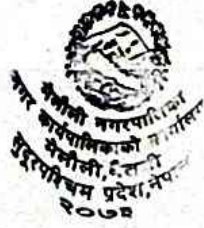 मेलौली नगरपालिका
नगर कार्यपालिकाको कार्यालय
मेलौली,
सुदूरपश्चिम प्रदेश, नेपाल
२०७३